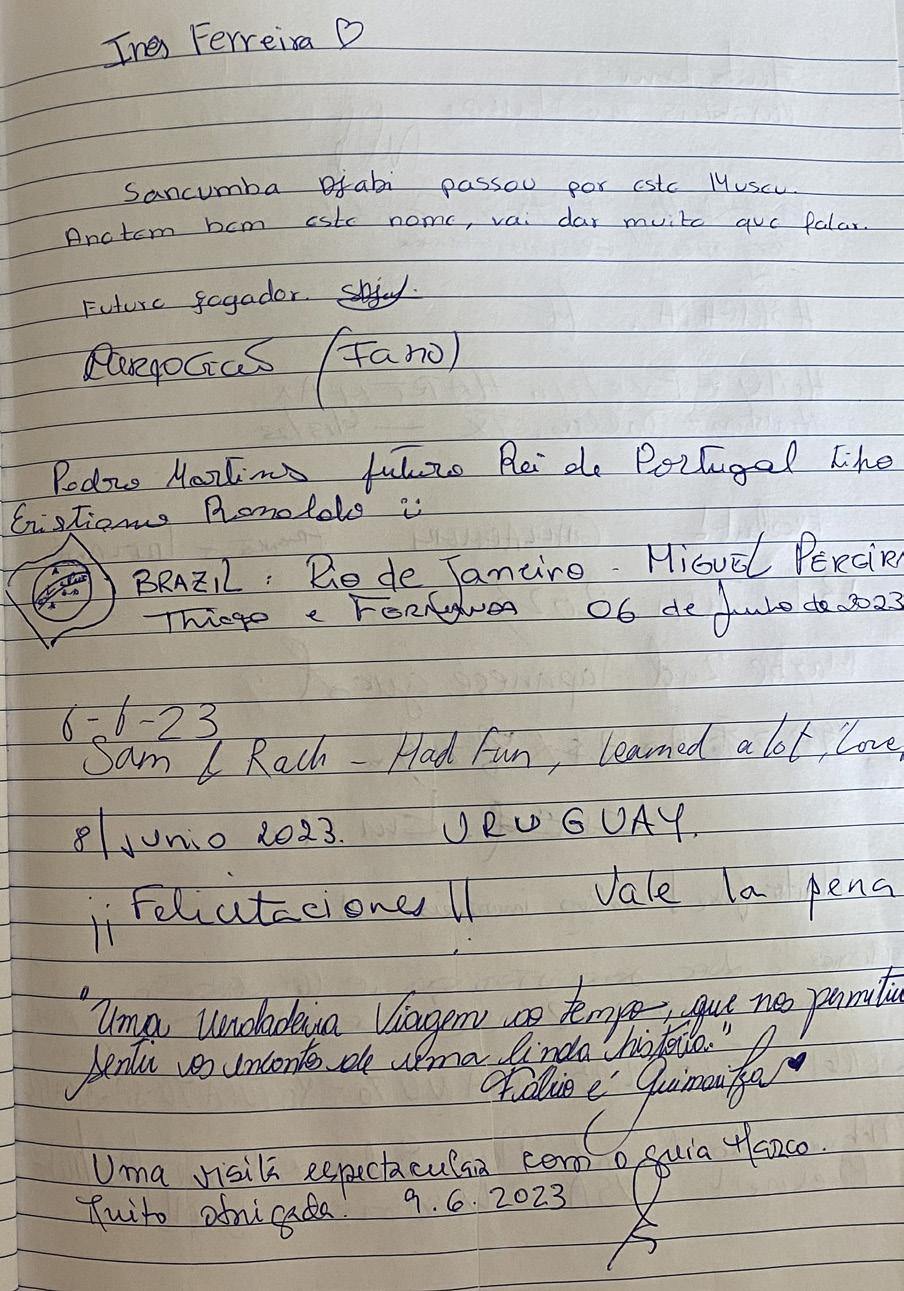 Ines Ferreira ♡
Sancumba Djabi passou por este Museu.
Anotem bem este nome, vai dar muito que falar.
Futuro jogador.
(Fano)
Pedro Martins futuro Rei de Portugal tipo
Cristiano Ronaldo
BRAZIL: Rio de Janeiro - MIGUEL PEREIRA
Thiago e 06 de Junho de 2023
6-6-23
Sam & Rach - Had Fun, learned a lot, love,
8/ junio 2023. URUGUAY.
¡¡Felicitaciones!! Vale la pena
"Uma verdadeira Viagem ao tempo, que nos permitiu
sentir os encantos de uma linda história."
Fábio e ♥
Uma visita espectacular com o guia Marco.
Muito obrigada! 9.6.2023